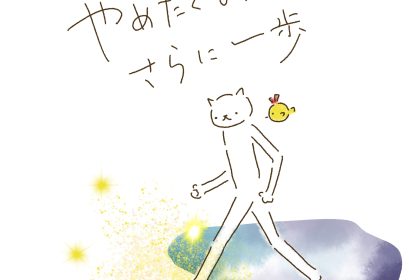 やめたく
さらに一歩